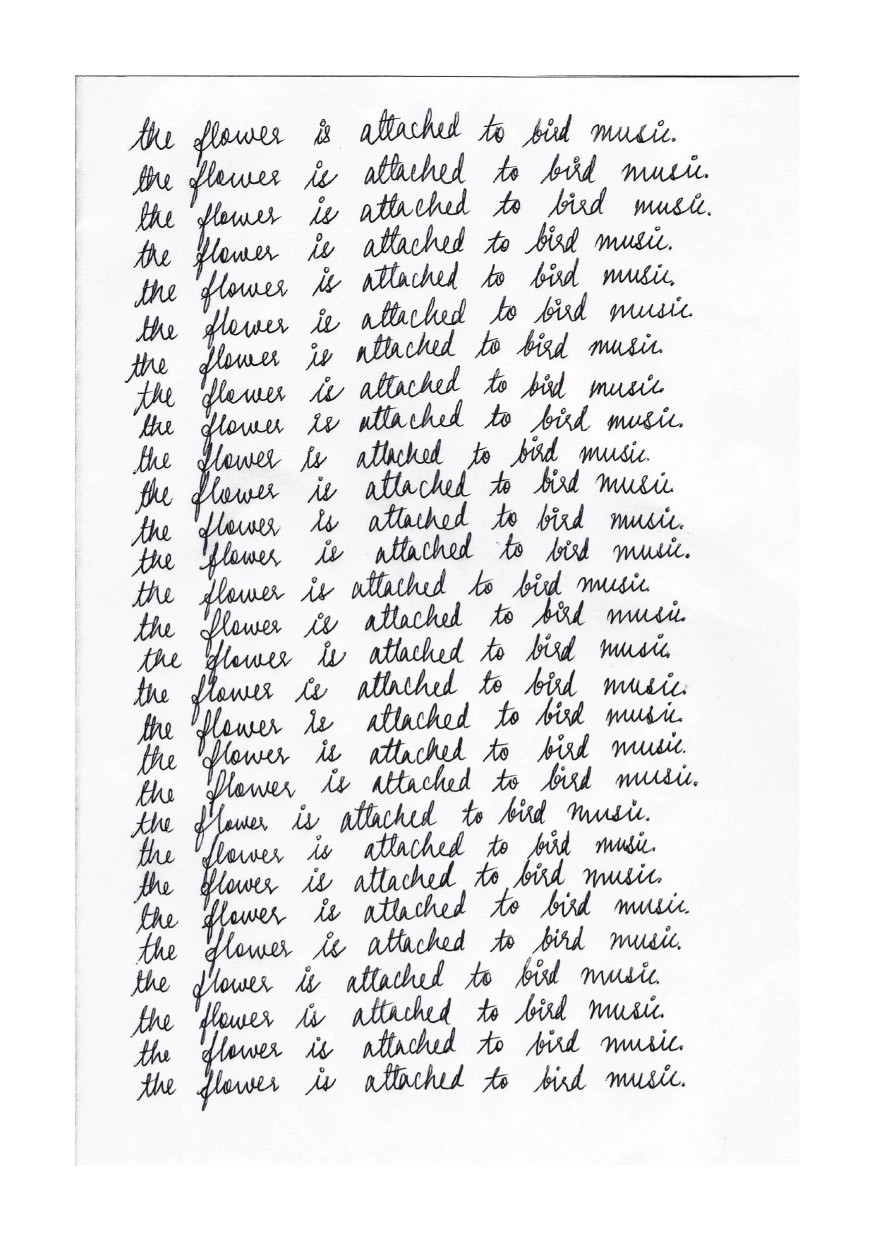 the flower is attached to bird music.
the flower is attached to bird music.
the flower is attached to bird music.
the flower is attached to bird music.
the flower is attached to bird music.
the flower is attached to bird music.
the flower is attached to bird music.
the flower is attached to bird music.
the flower is attached to bird music.
the flower is attached to bird music.
the flower is attached to bird music.
the flower is attached to bird music.
the flower is attached to bird music.
the flower is attached to bird music.
the flower is attached to bird music.
the flower is attached to bird music.
the flower is attached to bird music.
the flower is attached to bird music.
the flower is attached to bird music.
the flower is attached to bird music.
the flower is attached to bird music.
the flower is attached to bird music.
the flower is attached to bird music.
the flower is attached to bird music.
the flower is attached to bird music.
the flower is attached to bird music.
the flower is attached to bird music.
the flower is attached to bird music.
the flower is attached to bird music.